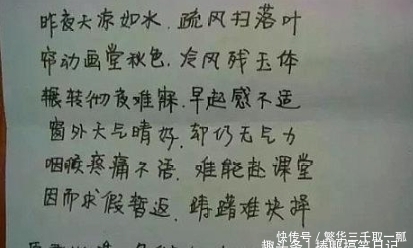 昨夜天凉如水，疏风扫落叶
帘动画堂秋色，冷风残玉体
辗转彻夜难寐，早起感不适
窗外天气晴好，却仍无气力
咽喉疼痛不语，难能赴课堂
因而求假暂返，踌躇难抉择
快传号／繁华三千取一瓢